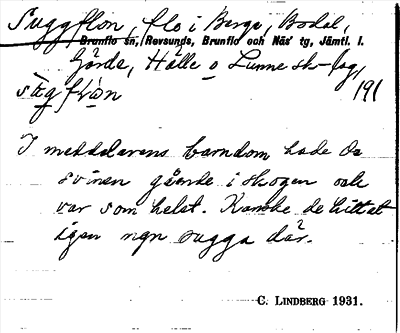 Suggflon, flo i Berge, Bodal,
Brunflo sn, Revsunds, Brunflo och Näs' tg, Jämtl. l.
Gärde, Hälle o Lunne sk-lag,
191
I meddelarens barndom hade de
svinen gående i skogen och
var som helst. Kanske de hittat
igen ngn sugga där.
C. LINDBERG 1931.